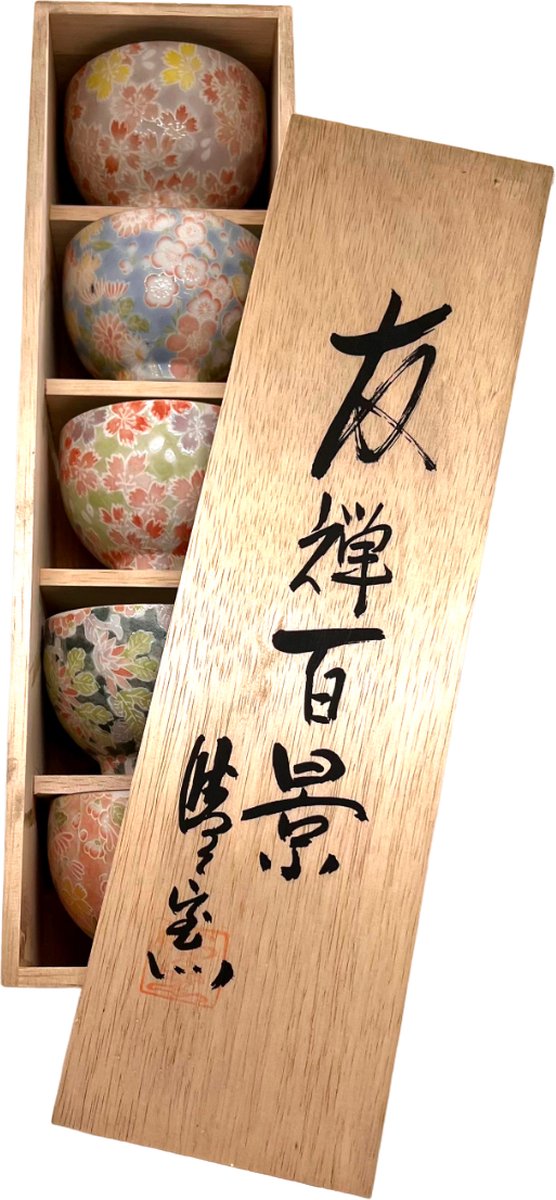 友禅百景
豊窯